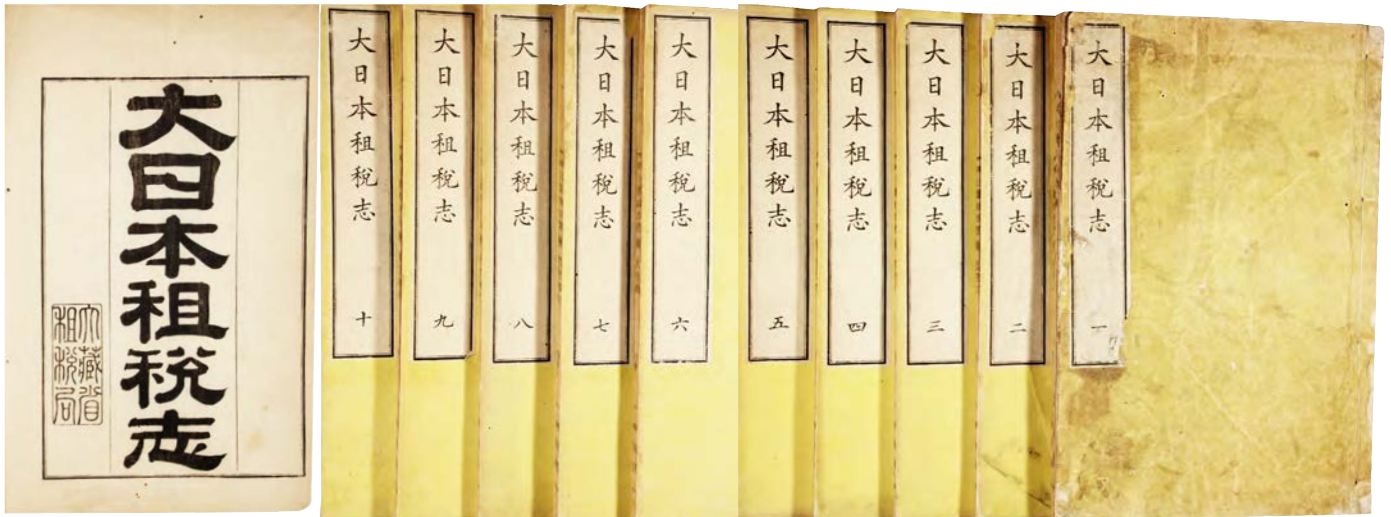 大日本租税志
大藏省
租税局
大日本租税志
十
大日本租税志
九
大日本租税志
八
大日本租税志
七
大日本租税志
六
大日本租税志
五
大日本租税志
四
大日本租税志
三
大日本租税志
二
大日本租税志
一